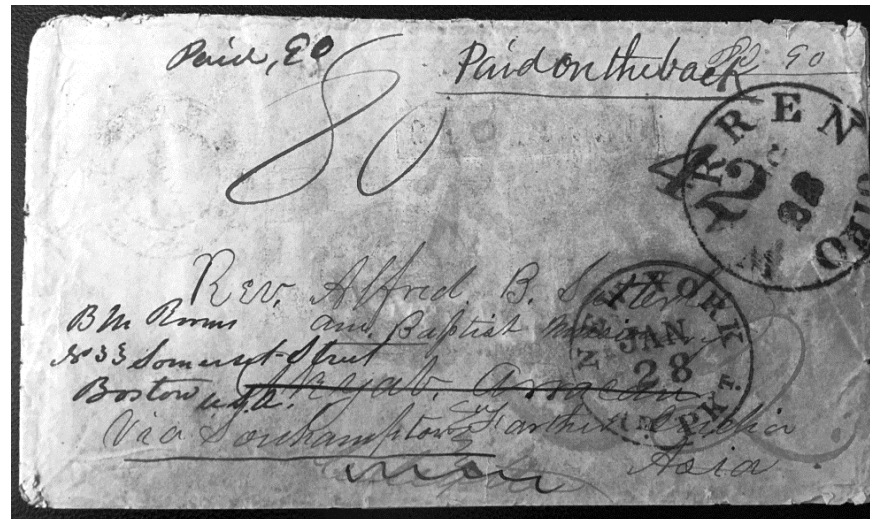 Paid, 80
Paid on the back
Pd 90
80
WARREN OHIO
28
Rev. Alfred. B.
Am. Baptist
B M Rooms
No 33 Somerset Street
Boston U.S.A.
Akyab. Arracan
Via Southampton Farther India
Asia
NEW YORK
JAN
28
AM. PKT.